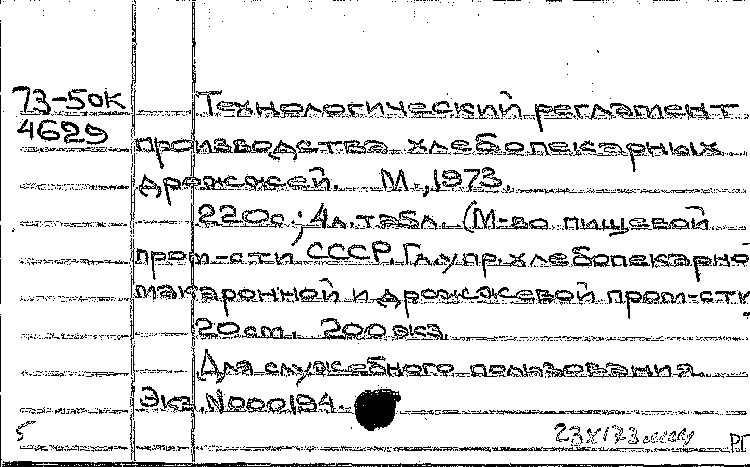 73-50к Технологический регламент
4629 производства хлебопекарных
дрожжей. М.,1973.
220с.; 4л.табл. (М-во пищевой
пром-сти СССР. Гл.упр.хлебопекарно
макаронной и дрожжевой пром-сти
20см. 200экз.
Для служебного пользования.
Экз.N000194.
5 23X173 РГ